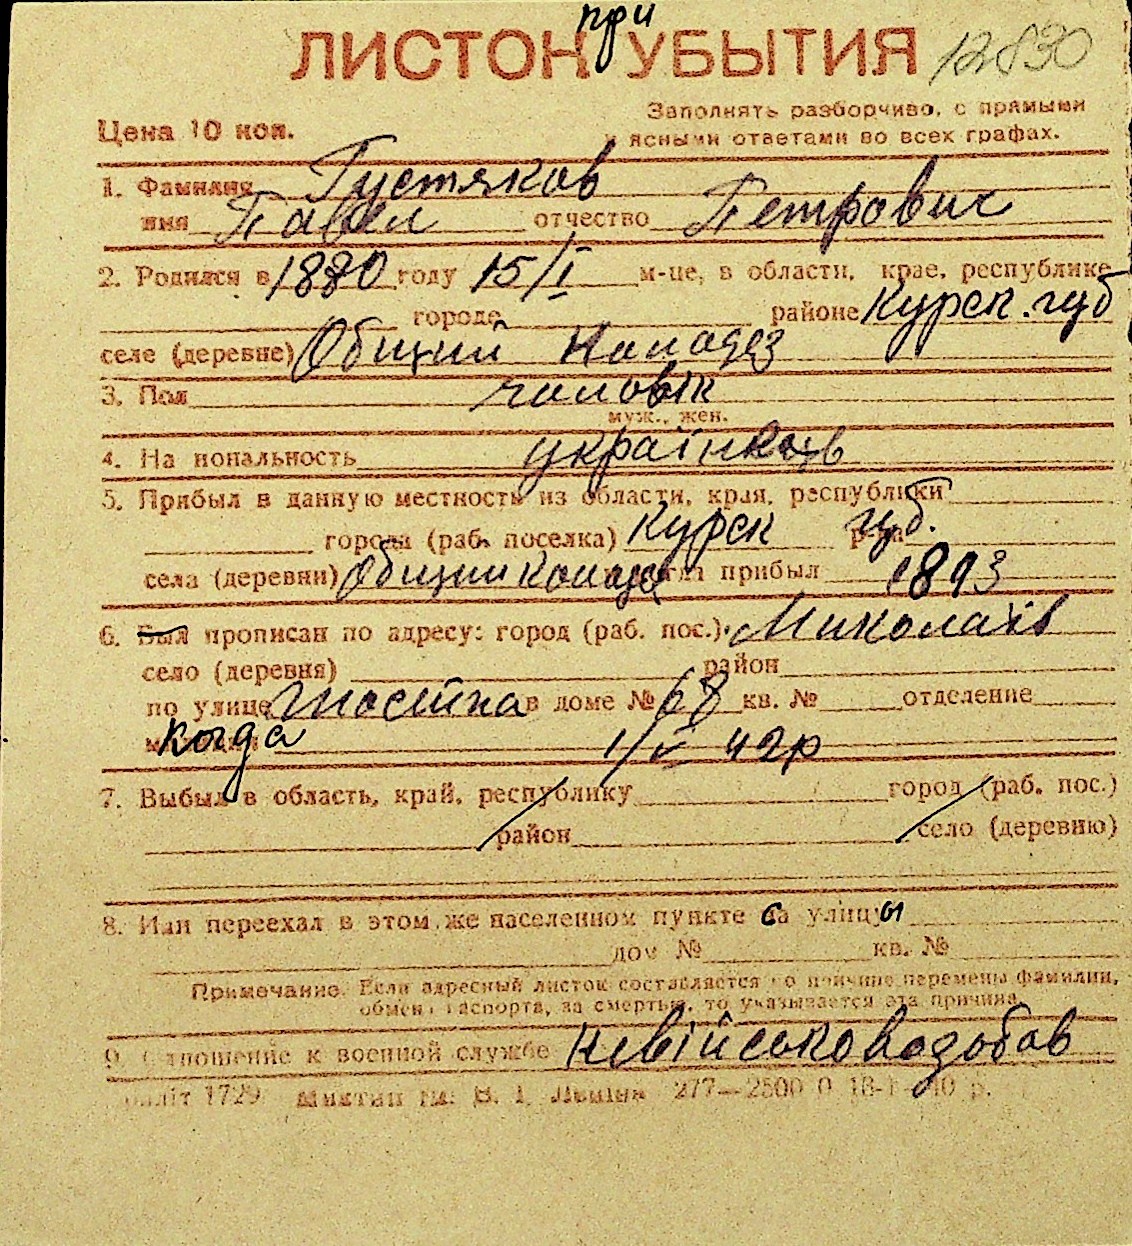 при
ЛИСТОК УБЫТИЯ 12830
Заполнять разборчиво, с прямыми
Цена 10 коп. и ясными ответами во всех графах.
1. Фамилия Густяков
имя Павел отчество Петрович
2. Родился в 1880 году 15/I м-це, в области, крае, республике
городе районе Курск. губ
селе (деревне) Общий Колодез
3. Пол чоловік
муж., жен.
4. На иональность українець
5. Прибыл в данную местность из области, края, республики
города (раб. поселка) Курск губ. р-на
села (деревни) Общий Колодез когда прибыл 1893
6. Был прописан по адресу: город (раб. пос.) Миколаїв
село (деревня) район
по улице в доме № 68 кв. № отделение
когда 1/V 42р
7. Выбыл в область, край, республику город (раб. пос.)
район село (деревню)
8. Или переехал в этом же населенном пункте са улицы
дом № кв. №
Примечание. Если адресный листок составляется по причине перемены фамилии,
обмена паспорта, за смертью, то указывается эта причина.
9. Отношение к военной службе невійськовозобов
літ 1729 Миктип ім. В. І. Леніна 277—2500 0 18-I-40 р.